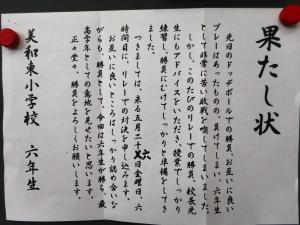 果たし状
先日のドッヂボールでの勝負、お互いに良い
プレーはあったものの、負けてしまい、六年生
として非常に苦い敗戦を喫してしまいました。
しかし、このたびのリレーでの勝負、校長先
生にもアドバイスをいただき、授業でしっかり
練習し、勝負にむけてしっかりと準備をしてき
ました。
つきましては、来る五月二十六日金曜日、六
時間目に、リレーでの対決を申し込みます。
お互いに良いところはしっかり認め合いな
がらも、勝負として、今回は六年生が勝ち、最
高学年としての意地を見せたいと思います。
正々堂々、勝負をよろしくお願いします。
美和東小学校 六年生